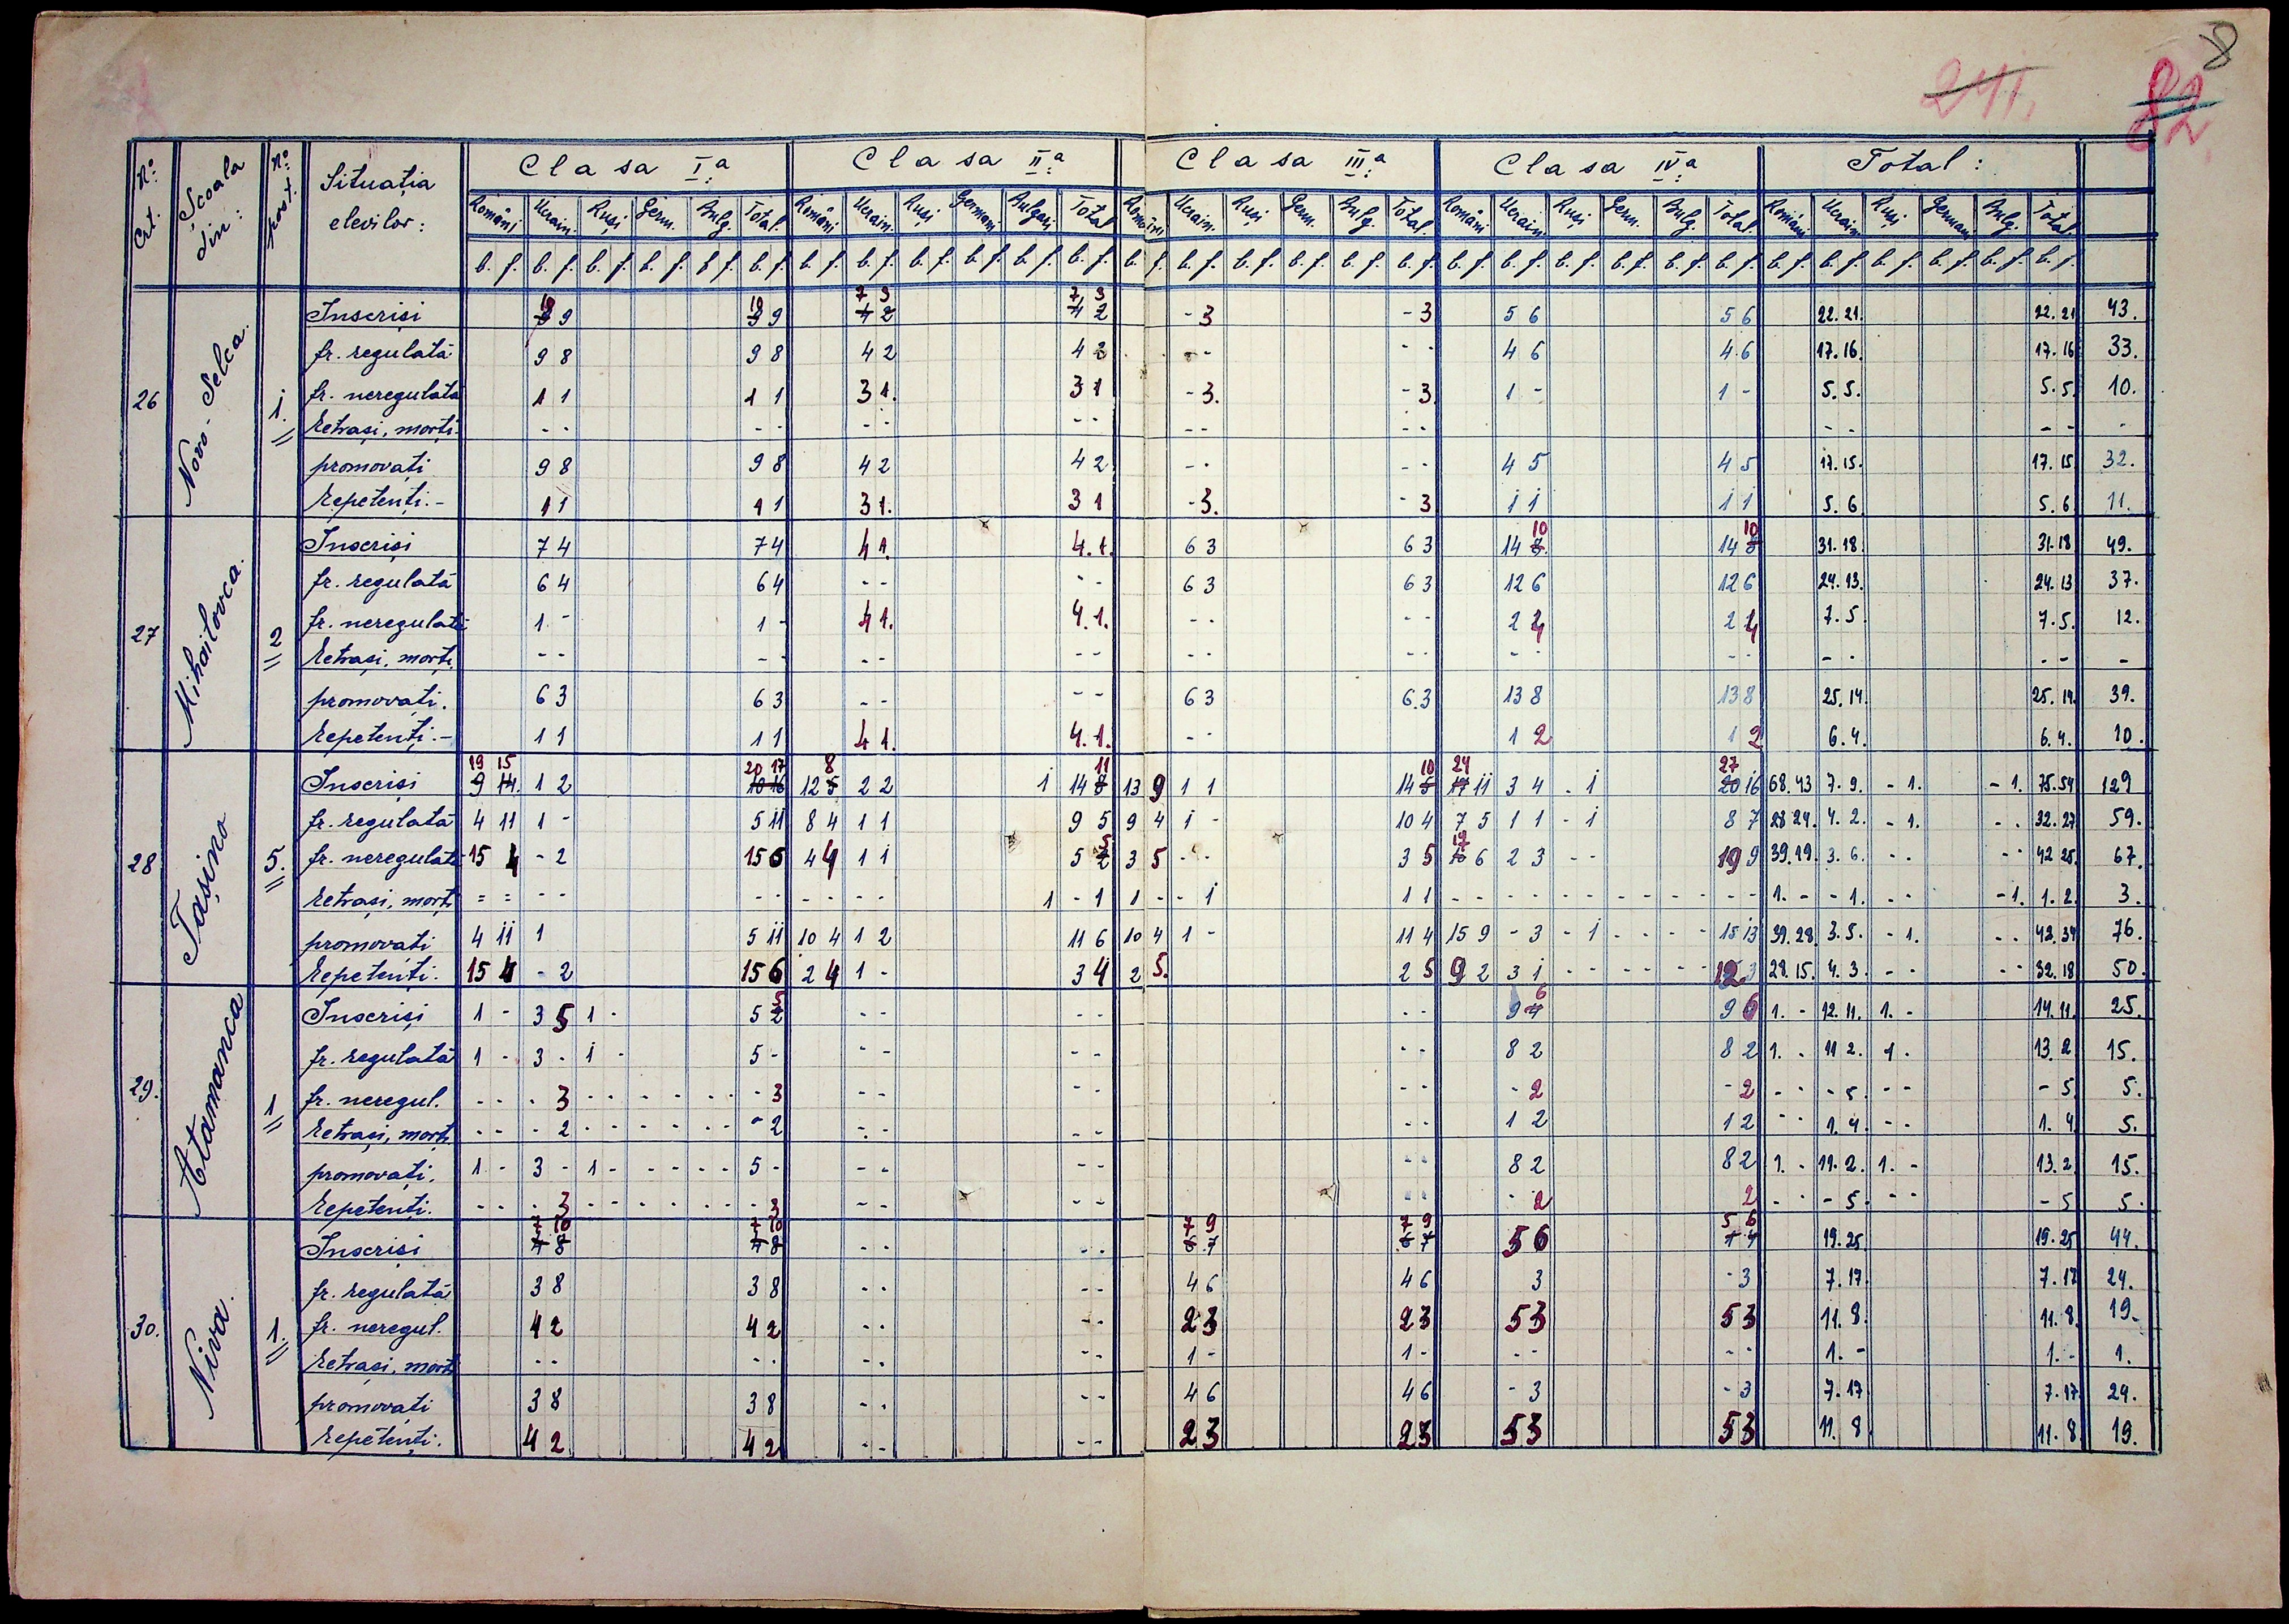 8
241.
82
Nº Crt. Școala din: Nº post. Situația elevilor: Clasa Iª Clasa IIª Clasa IIIª Clasa IVª Total:
Români Ucrain. Ruși Germ. Bulg. Total. Români Ucrain. Ruși Germani Bulgari Total Români Ucrain. Ruși Germ. Bulg. Total. Români Ucrain. Ruși Germ. Bulg. Total. Români Ucrain. Ruși Germani Bulg. Total.
b. f. b. f. b. f. b. f. b. f. b. f. b. f. b. f. b. f. b. f. b. f. b. f. b. f. b. f. b. f. b. f. b. f. b. f. b. f. b. f. b. f. b. f. b. f. b. f. b. f. b. f. b. f. b. f. b. f. b. f.
26 Novo-Selca. 1.
Inscriși 10 9 10 9 7 3 4 2 7 3 4 2 - 3 - 3 5 6 5 6 22. 21. 22. 21 43.
fr. regulată 9 8 9 8 4 2 4 2 - - - - 4 6 4 6 17. 16. 17. 16 33.
fr. neregulată 1 1 1 1 3 1. 3 1 - 3. - 3 1 - 1 - 5. 5. 5. 5. 10.
Retrași, morți. - - - - - - - - - - - - - - - - -
promovați 9 8 9 8 4 2 4 2 - - - - 4 5 4 5 17. 15. 17. 15 32.
Repetenți.- 1 1 1 1 3 1. 3 1 - 3. - 3 1 1 1 1 5. 6 5. 6 11.
27 Mihailovca. 2
Inscriși 7 4 7 4 4 1. 4. 1. 6 3 6 3 14 8 10 14 8 10 31. 18. 31. 18 49.
fr. regulată 6 4 6 4 - - - - 6 3 6 3 12 6 12 6 24. 13. 24. 13 37.
fr. neregulată 1 - 1 - 4 1. 4. 1. - - - - 2 4 2 4 7. 5 7. 5. 12.
Retrași, morți. - - - - - - - - - - - - - - - - - - - - -
promovați. 6 3 6 3 - - - - 6 3 6. 3 13 8 13 8 25. 14. 25. 14. 39.
Repetenți.- 1 1 1 1 4 1. 4. 1. - - 1 2 1 2 6. 4. 6. 4. 10.
28 Tașino 5.
Inscriși 19 15 9 14. 1 2 20 17 10 16 12 5 8 2 2 1 14 8 11 13 9 1 1 14 5 10 24 17 11 3 4 - 1 27 20 16 68. 43 7. 9. - 1. - 1. 75. 54 129
fr. regulată 4 11 1 - 5 11 8 4 1 1 9 5 9 4 1 - 10 4 7 5 1 1 - 1 8 7 28 24. 4. 2. - 1. - - 32. 27 59.
fr. neregulată 15 4 - 2 15 6 4 4 1 1 5 2 5 3 5 - - 3 5 17 10 6 2 3 - - 19 9 39. 19. 3. 6. - - - - 42 25. 67.
Retrași, morți = = - - - - - - - - 1 - 1 1 - - 1 1 1 - - - - - - - - - - - - 1. - - 1. - - - 1. 1. 2. 3.
promovați 4 11 1 5 11 10 4 1 2 11 6 10 4 1 - 11 4 15 9 - 3 - 1 - - - - 15 13 39. 28. 3. 5. - 1. - - 42. 34 76.
Repetenți. 15 4 - 2 15 6 2 4 1 - 3 4 2 5. 2 5 9 2 3 1 - - - - - - 12 3 28. 15. 4. 3. - - - - 32. 18 50.
29. Atamanca 1
Inscriși 1 - 3 5 1 - 5 2 5 - - - - - - 9 4 6 9 6 1. - 12. 11. 1. - 14. 11. 25.
fr. regulată 1 - 3 - 1 - 5 - - - - - - - 8 2 8 2 1. - 11 2. 1. 13. 2 15.
fr. neregul. - - - 3 - - - - - - - 3 - - - - - - - 2 - 2 - - - 5. - - - 5. 5.
Retrași, morți - - - 2 - - - - - - - 2 - - - - - - 1 2 1 2 - - 1. 4. - - 1. 4. 5.
promovați. 1 - 3 - 1 - - - - - 5 - - - - - - - 8 2 8 2 1. - 11. 2. 1. - 13. 2 15.
Repetenți. - - - 3 - - - - - - - 3 - - - - - - - 2 2 - - - 5. - - - 5 5.
30. Niva. 1.
Inscriși 7 10 4 8 7 10 4 8 - - - - 7 9 6 7 7 9 6 7 5 6 5 6 1 4 19. 25. 19. 25 44.
fr. regulată 3 8 3 8 - - - - 4 6 4 6 3 - 3 7. 17. 7. 17 24.
fr. neregul. 4 2 4 2 - - - - 2 3 2 3 5 3 5 3 11. 8. 11. 8. 19.
Retrași, morți - - - - - - - - 1 - 1 - - - - - 1. - 1. - 1.
promovați 3 8 3 8 - - - - 4 6 4 6 - 3 - 3 7. 17 7. 17 24.
Repetenți. 4 2 4 2 - - - - 2 3 2 3 5 3 5 3 11. 8 11. 8 19.